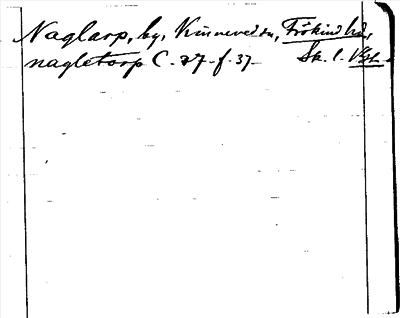 Naglarp, by, Kinneveds sn, Frökind hd,
nagletorp C. 27. f. 37. Sk. l. Vg.